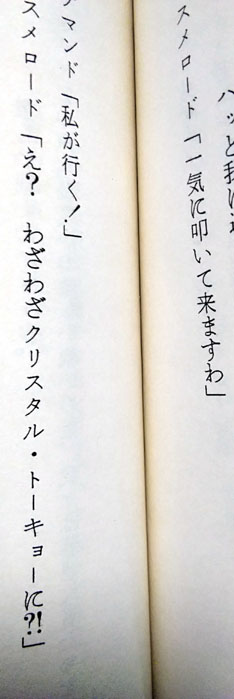 ハッと我に返
スメロード「一気に叩いて来ますわ」
マンド「私が行く！」
スメロード「え？　わざわざクリスタル・トーキョーに?!」